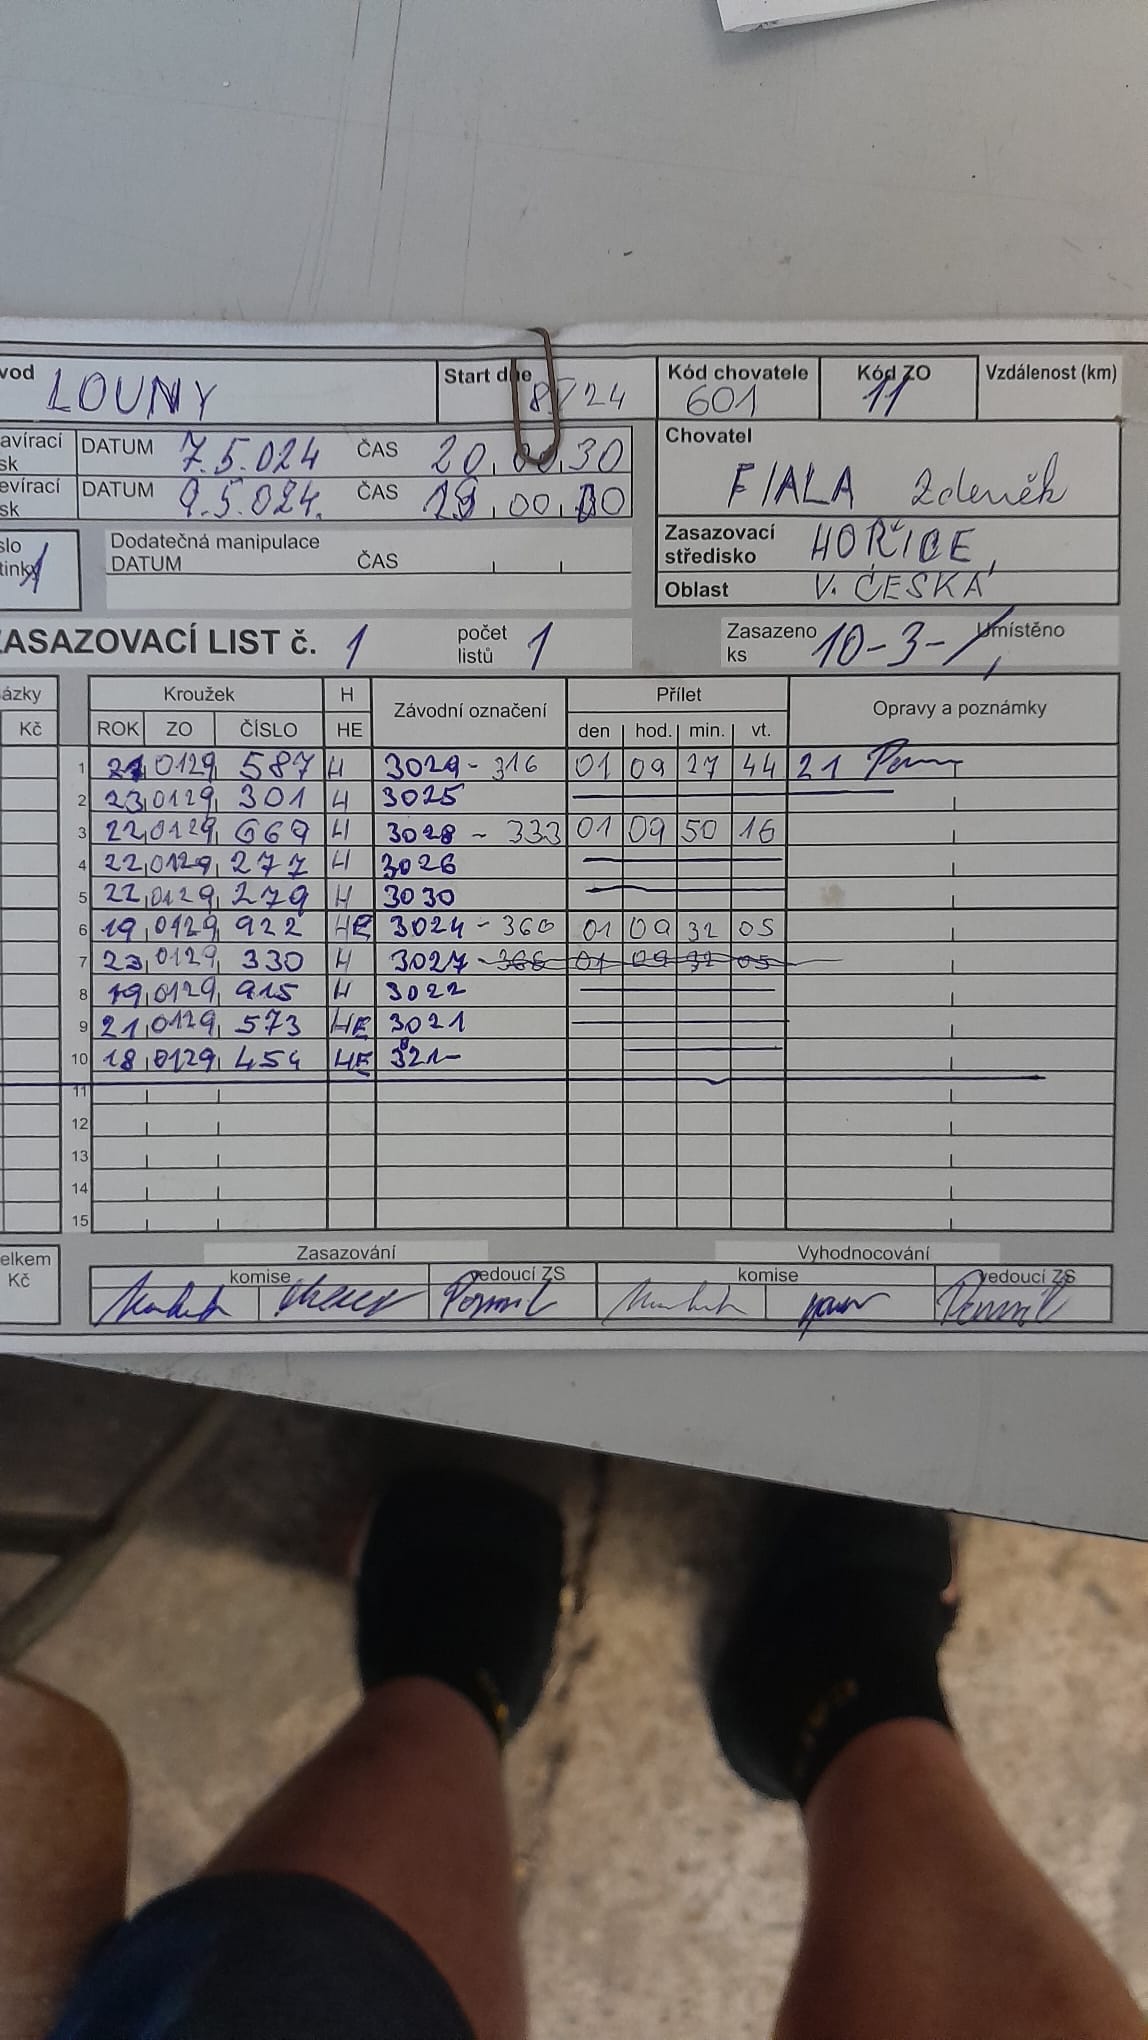 vod LOUNY Start dne 8 24 Kód chovatele 601 Kód ZO 11 Vzdálenost (km)
avírací DATUM 7.5.024 ČAS 20,00,30
sk
evírací DATUM 9.5.024. ČAS ,00,
sk
Chovatel
FIALA Zdeněk
slo Dodatečná manipulace
tinky 1 DATUM ČAS
Zasazovací
středisko HOŘICE,
Oblast V. ČESKÁ
ZASAZOVACÍ LIST č. 1 počet listů 1 Zasazeno ks 10-3- Umístěno
ázky Kroužek H Závodní označení Přílet Opravy a poznámky
Kč ROK ZO ČÍSLO HE den hod. min. vt.
1 21 0129 587 H 3029 - 316 01 09 27 44 21
2 23 0129 301 H 3025
3 22 0129 669 H 3028 - 333 01 09 50 16
4 22 0129 277 H 3026
5 22 0129 279 H 3030
6 19 0129 922 HE 3024 - 360 01 09 32 05
7 23 0129 330 H 3027 - 366 01 09 32 05
8 19 0129 915 H 3022
9 21 0129 573 HE 3021
10 18 0129 454 HE
11
12
13
14
15
elkem Zasazování Vyhodnocování
Kč komise vedoucí ZS komise vedoucí ZS